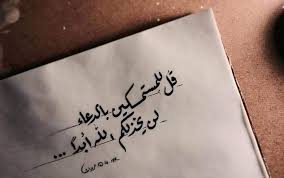 قل للمستمسكين بالدعاء
لن يخذلكم الله أبدًا ...